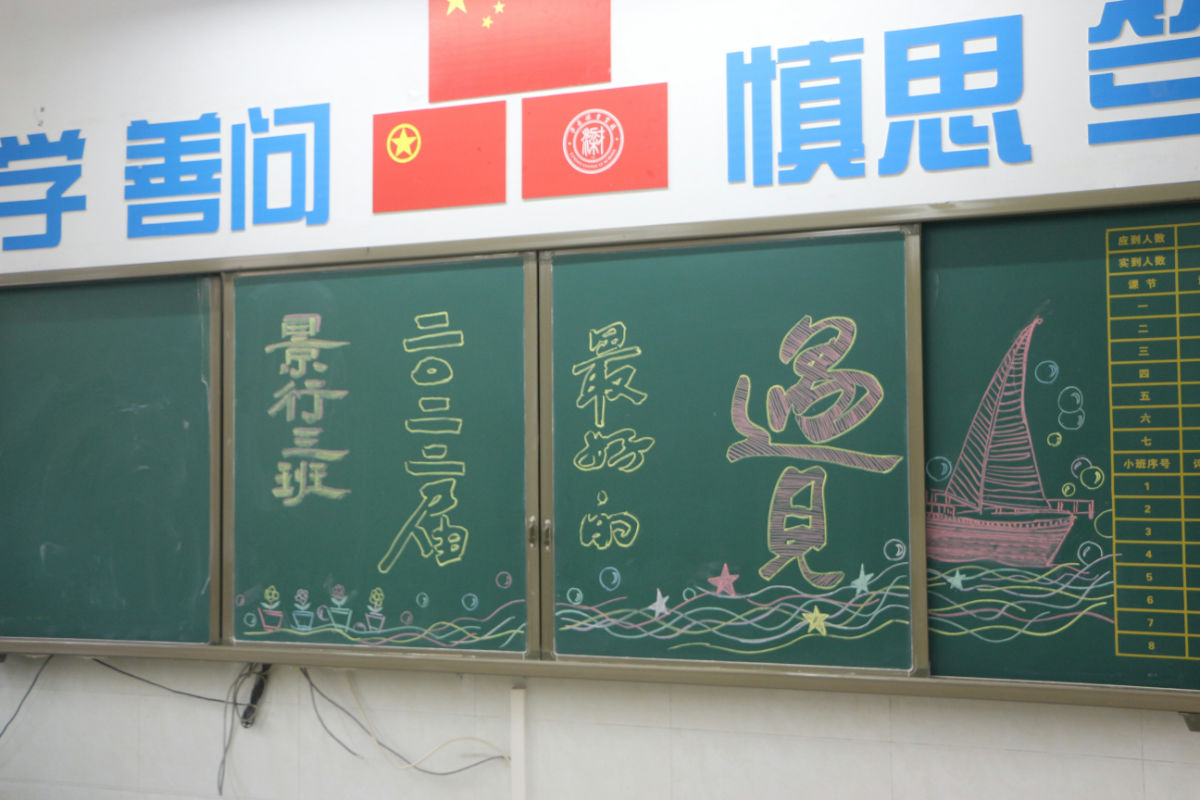 学 善问
慎思
遇見
最好的
二〇二三届
景行三班
应到人数
实到人数
课 节
一
二
三
四
五
六
七
小班序号
1
2
3
4
5
6
7
8